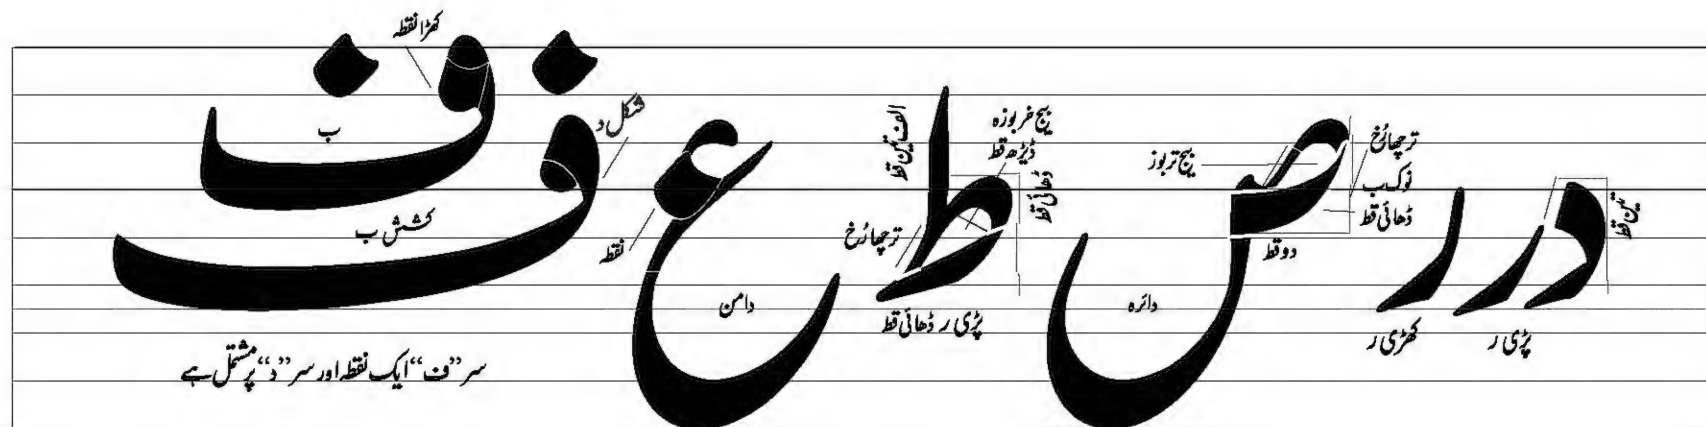 د ر ر ص ط ع ف ف
تین قط
پڑی ر
کھڑی ر
ترچھا رُخ
نوک ب
ڈھائی قط
بیج تربوز
دو قط
دائرہ
بیج خربوزہ
ڈیڑھ قط
ڈھائی قط
الف تین قط
ترچھا رُخ
پڑی ر ڈھائی قط
دامن
نقطہ
شکل د
کھڑا نقطہ
ب
کشش ب
سر ”ف“ ایک نقطہ اور سر ”د“ پر مشتمل ہے